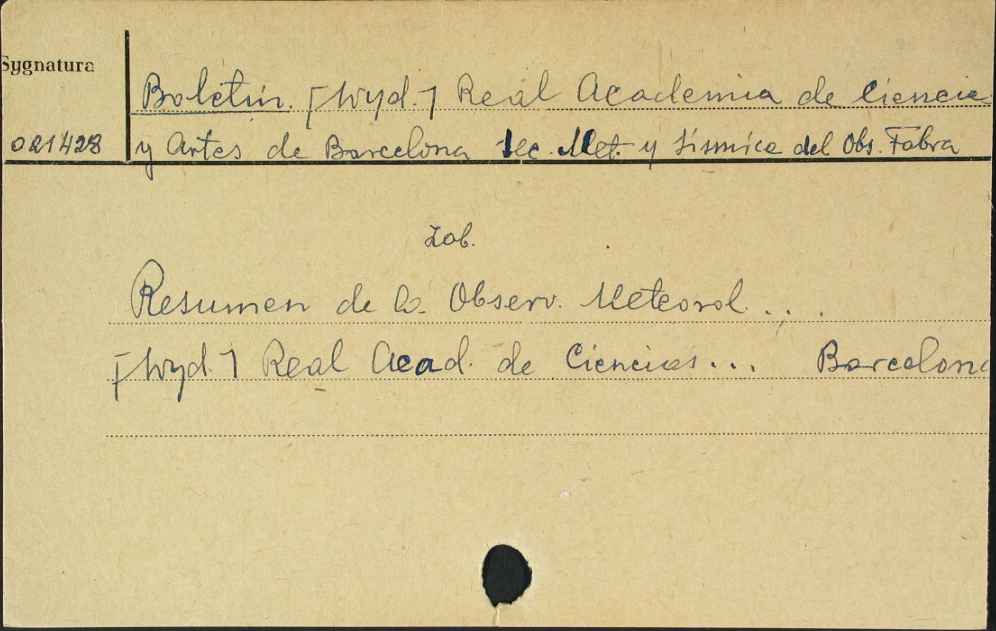 Sygnatura
Boletín. [wyd.] Real Academia de Ciencia
021428 y Artes de Barcelona Sec. Met. y Sismica del Obs. Fabra
Zob.
Resumen de Observ. Meteorol. ...
[wyd.] Real Acad. de Ciencias... Barcelona